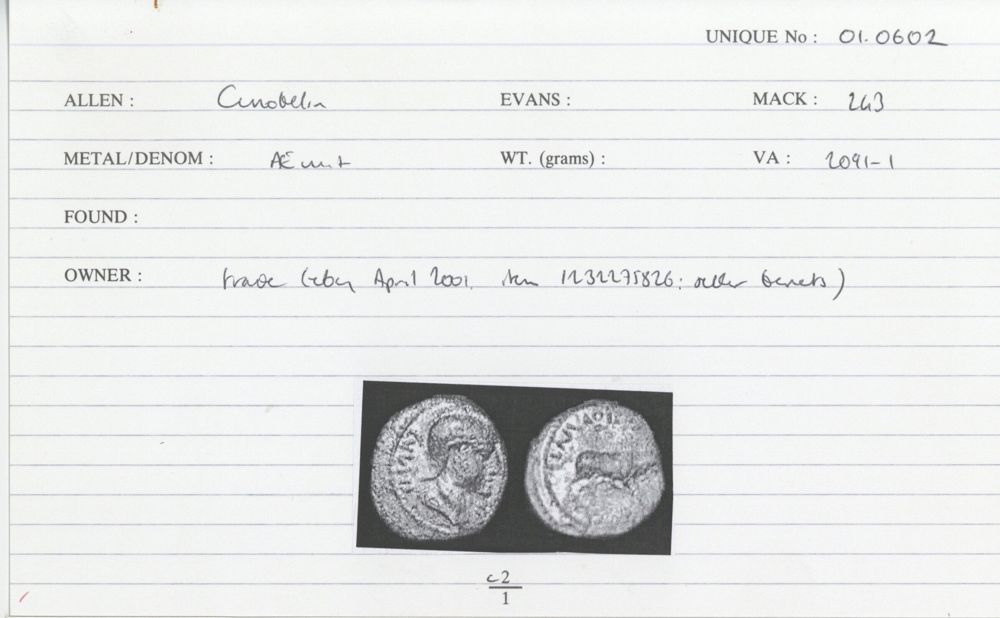 UNIQUE No : 01.0602
ALLEN : Cunobelin EVANS : MACK : 243
METAL/DENOM : Æ unit WT. (grams) : VA : 2091-1
FOUND :
OWNER : trade (eBay April 2001. item 1232275826: seller )
c2
1